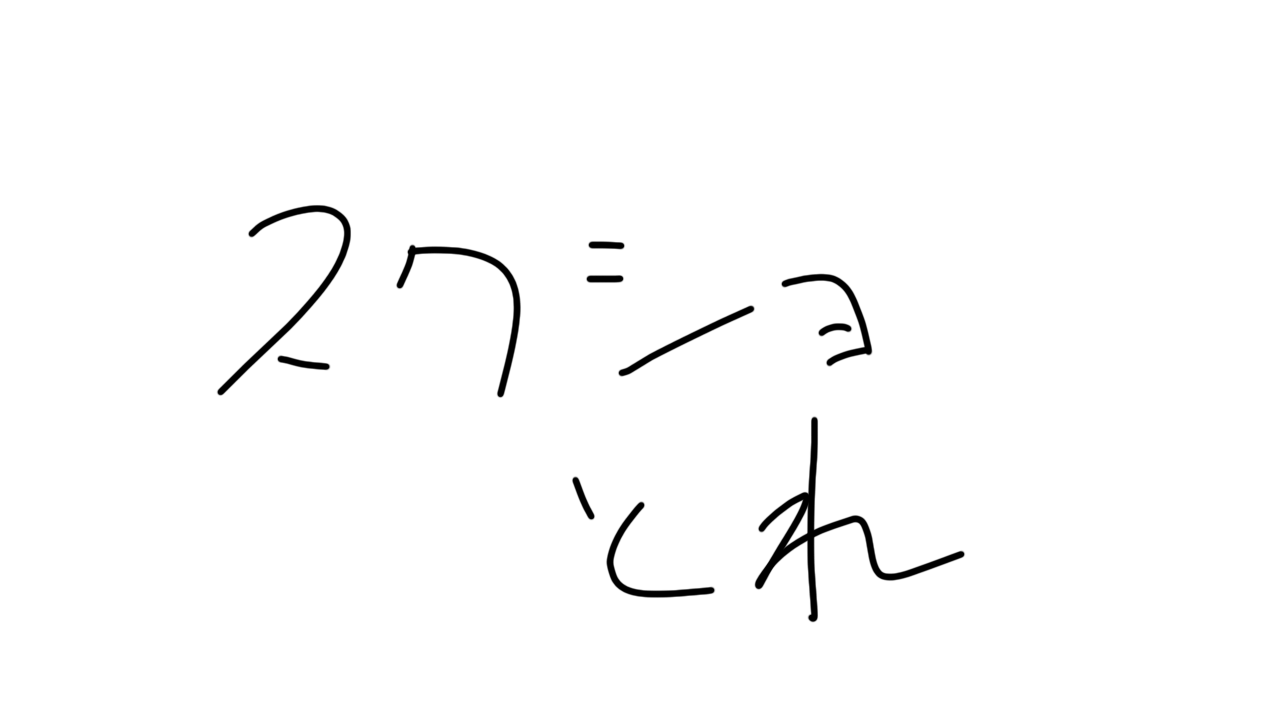 スクショ
とれ